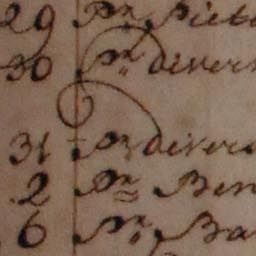 29 Pr Piet
30 Pr divers
31 Pr divers
2 Pr Ben
6 Pr Ba